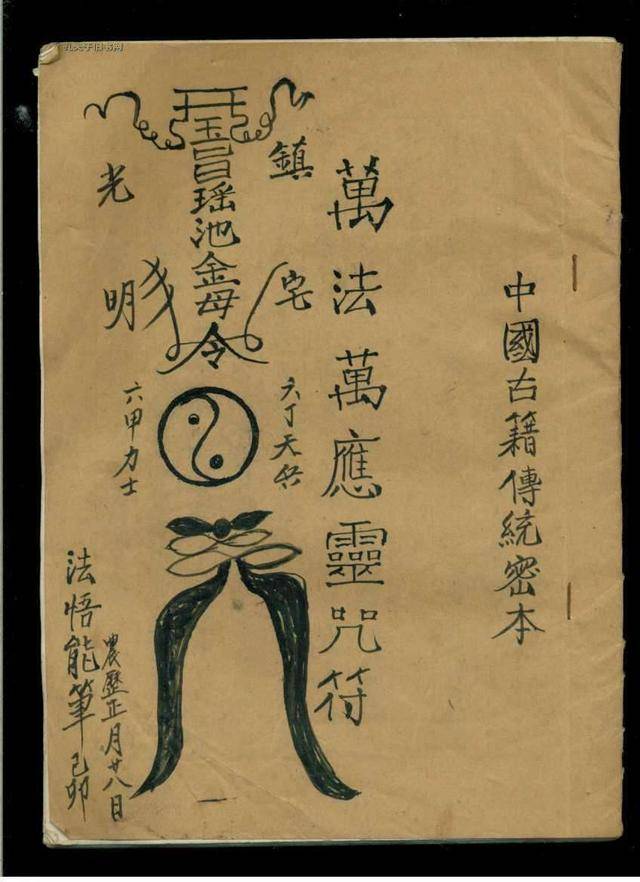 中國古籍傳統密本
萬法萬應靈咒符
鎮宅
六丁天兵
瑶池金母令
光明
六甲力士
農歷正月廿八日
法悟能筆己卯
孔夫子旧书网